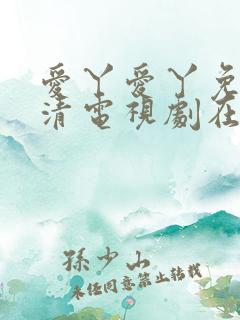 愛丫愛丫免
清電視劇在
孫少山
未經同意禁止轉載